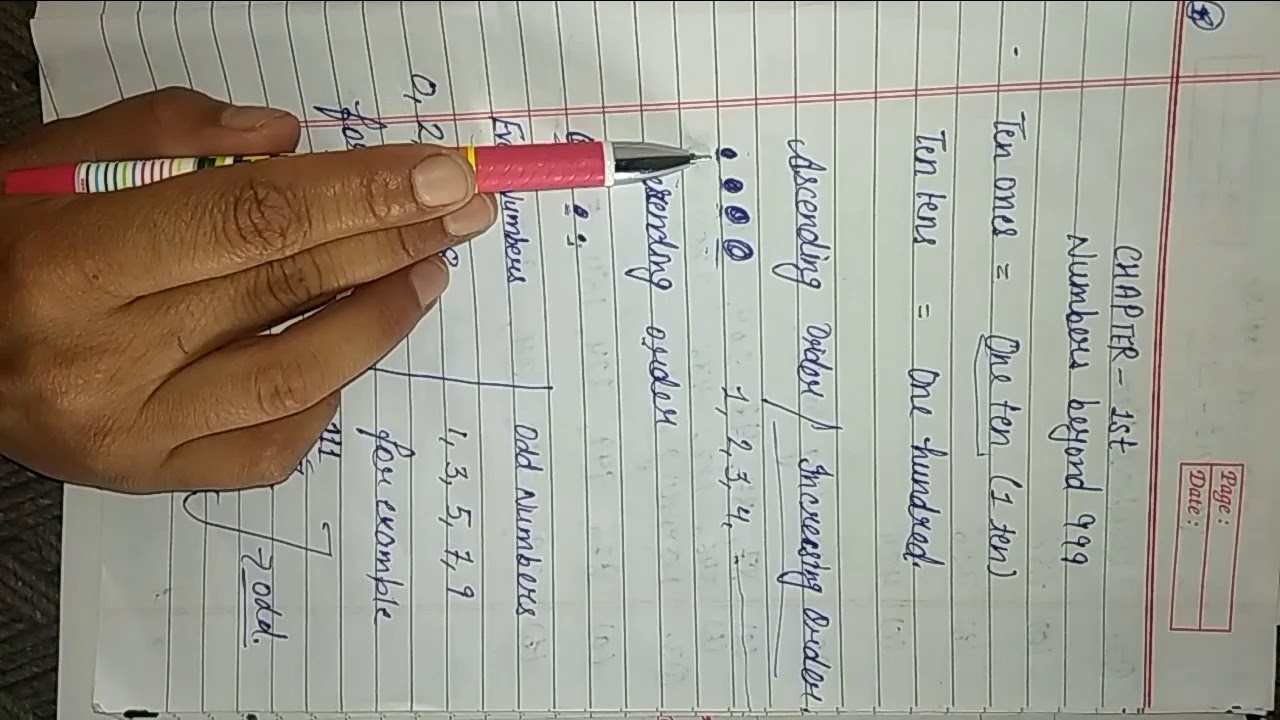 Page:
Date:
CHAPTER - 1st
Numbers beyond 999
Ten ones = One ten (1 ten)
Ten tens = One hundred.
Ascending Order / Increasing Order.
1, 2, 3, 4,
order
Numbers Odd Numbers
0, 2, 8 1, 3, 5, 7, 9
for example
111
odd.